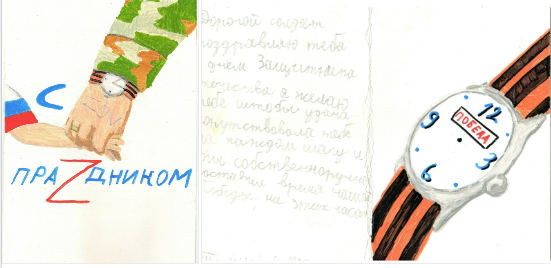 С
ПРАZДНИКОМ
Дорогой солдат
поздравляю тебя
с днем Защитника
отечества я желаю
тебе штобы удача
сопутствовала тебе
на каждом шагу и
ты собственноручно
время нашей
на этих часах
12
ПОБЕДА
9
3
6